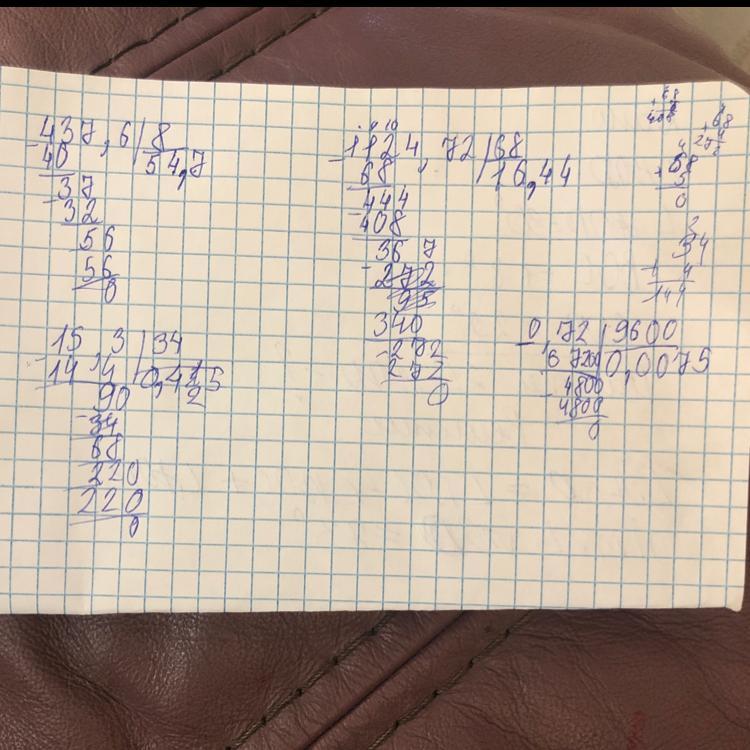 437,6 | 8
40 | 54,7
37
32
56
56
0
1124,72 | 68
68 | 16,44
444
408
36 7
272
95
340
272
272
0
68
274
68
0
34
4
144
15,3 | 34
14 4 | 0,4
90
34
68
220
220
0
0,72 | 9600
67200 | 0,0075
4800
4800
0